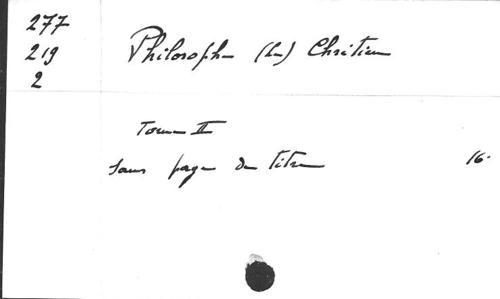 277
219
2
Philosophe (Le) Chrétien
Tome II
sans page de titre 16.